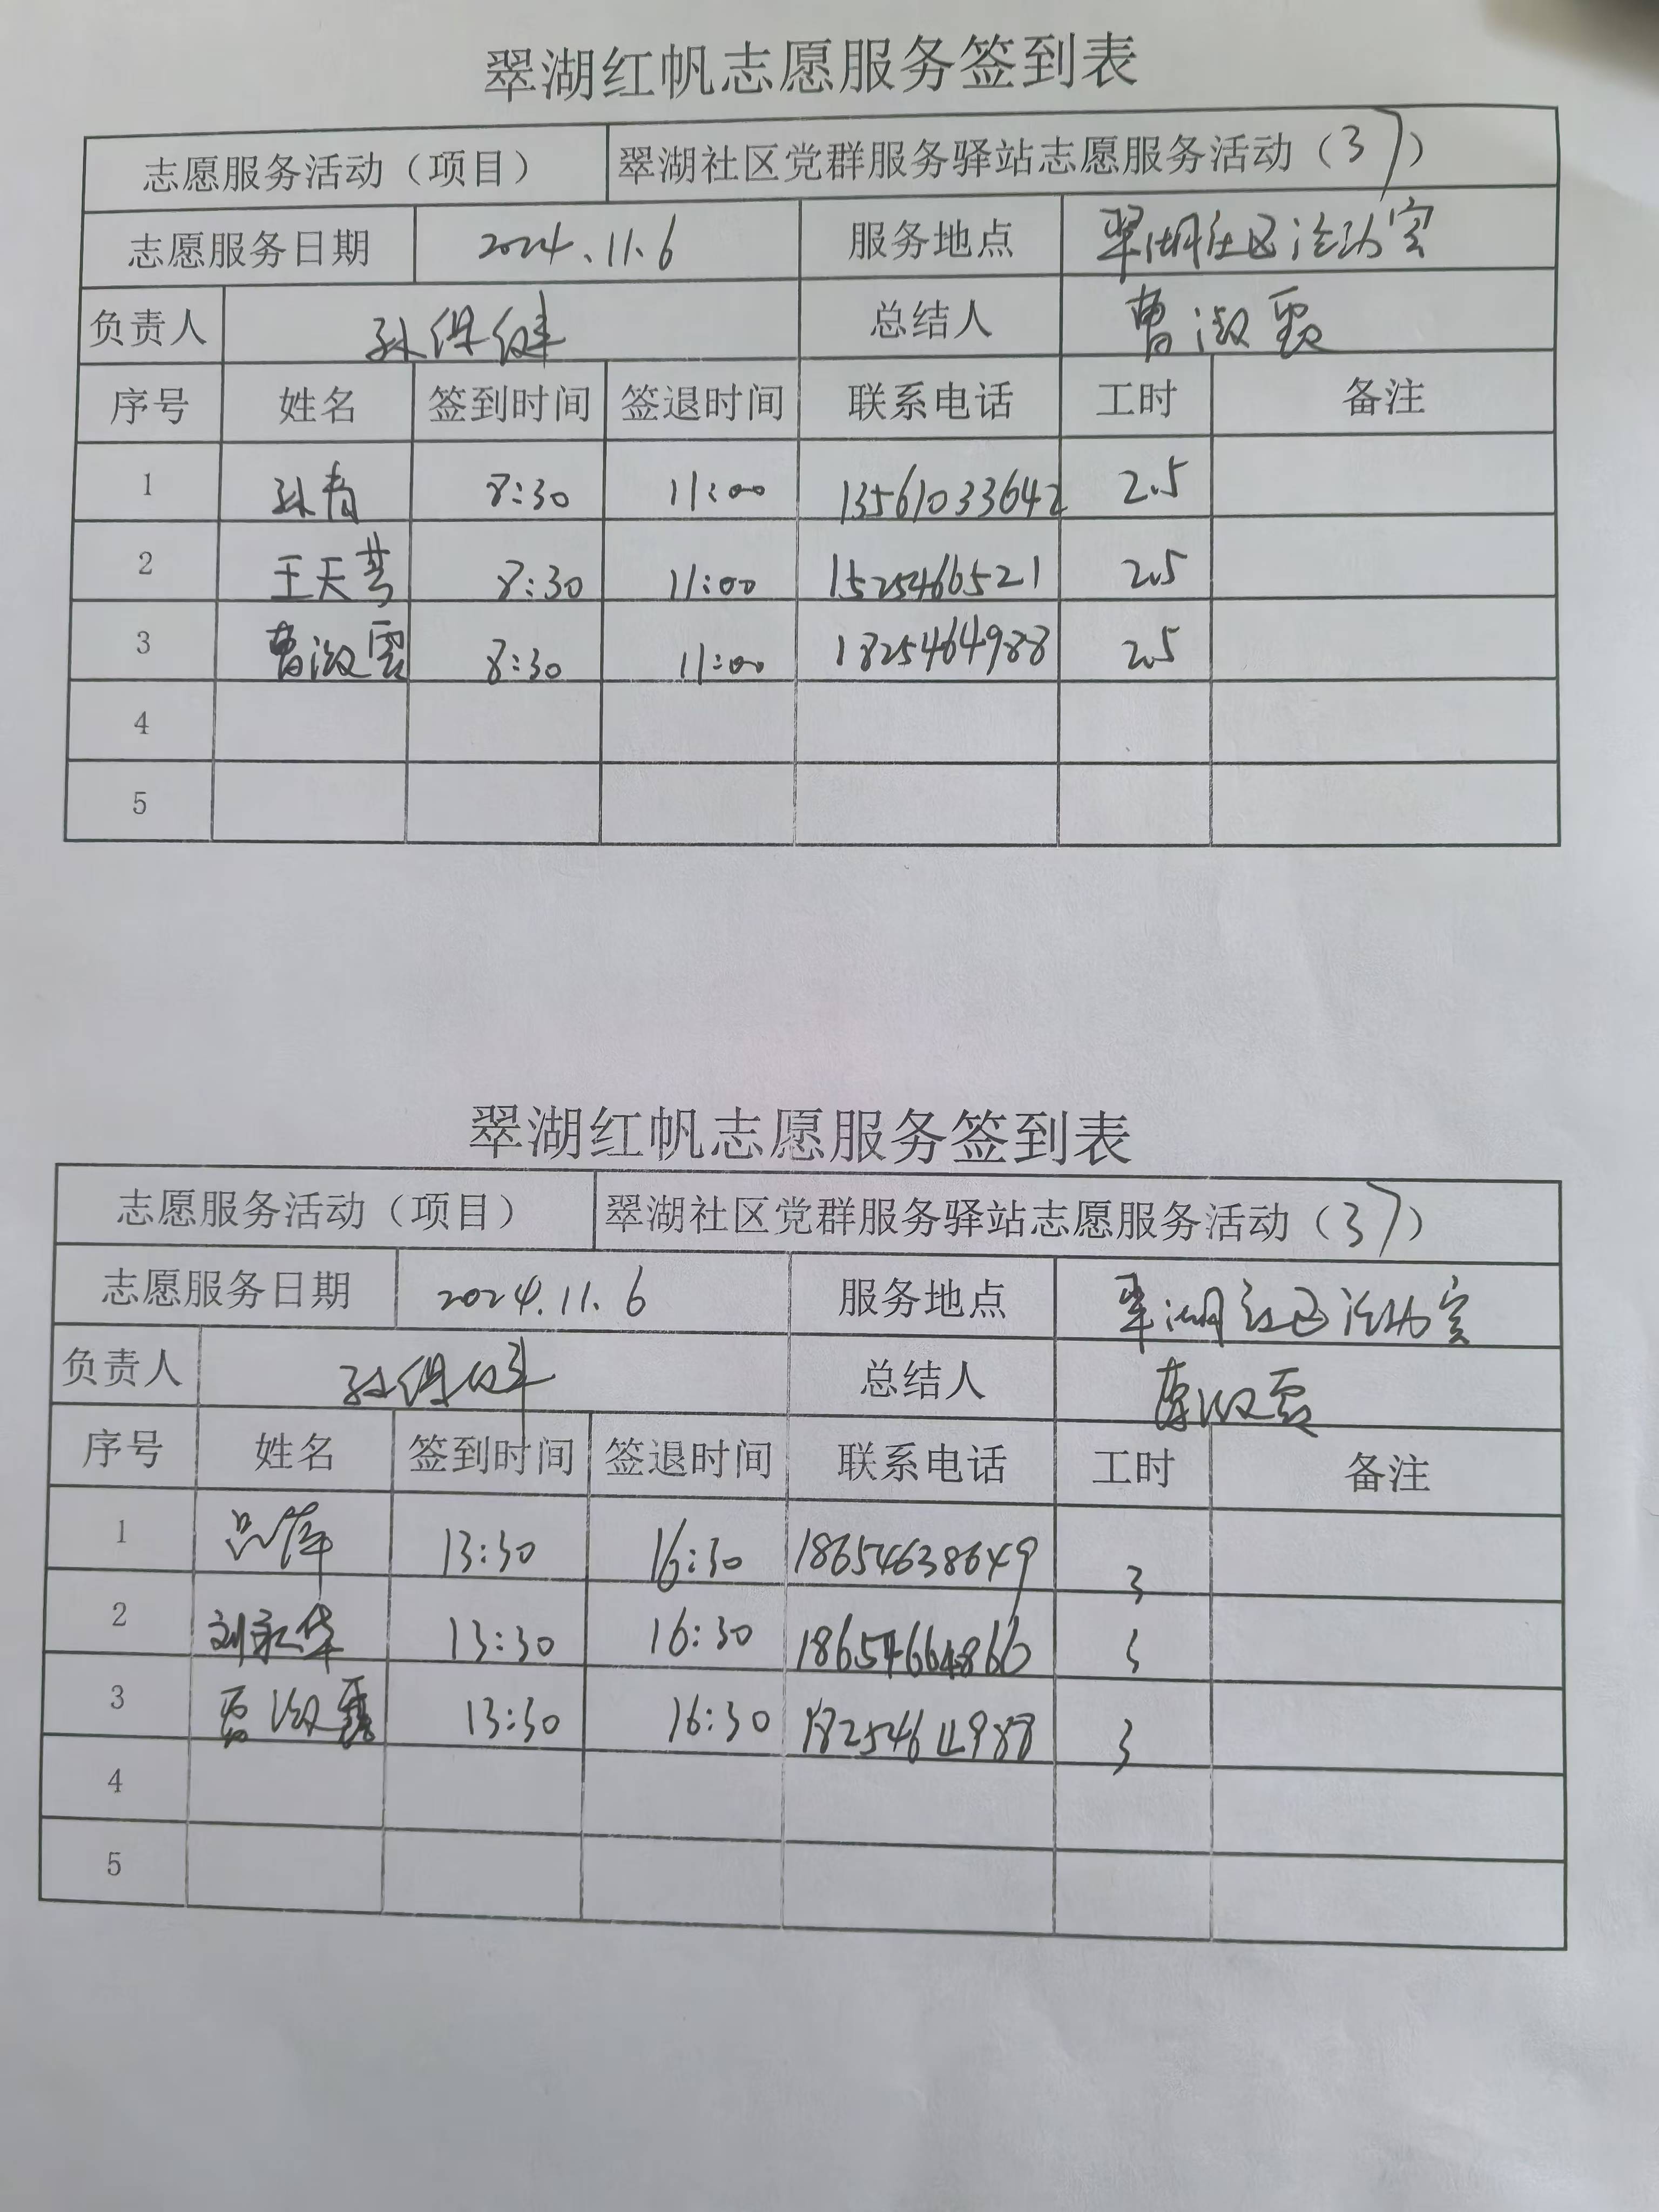 翠湖红帆志愿服务签到表
志愿服务活动（项目） 翠湖社区党群服务驿站志愿服务活动（37）
志愿服务日期 2024.11.6 服务地点 翠湖社区活动室
负责人 孙保健 总结人 曹淑霞
序号 姓名 签到时间 签退时间 联系电话 工时 备注
1 孙青 8:30 11:00 13561033642 2.5
2 王天 8:30 11:00 1525466521 2.5
3 曹淑霞 8:30 11:00 1825464988 2.5
4
5
翠湖红帆志愿服务签到表
志愿服务活动（项目） 翠湖社区党群服务驿站志愿服务活动（37）
志愿服务日期 2024.11.6 服务地点 翠湖社区活动室
负责人 孙保健 总结人 淑霞
序号 姓名 签到时间 签退时间 联系电话 工时 备注
1 吕萍 13:30 16:30 18654638649 3
2 刘永华 13:30 16:30 18654664866 3
3 淑 13:30 16:30 3
4
5